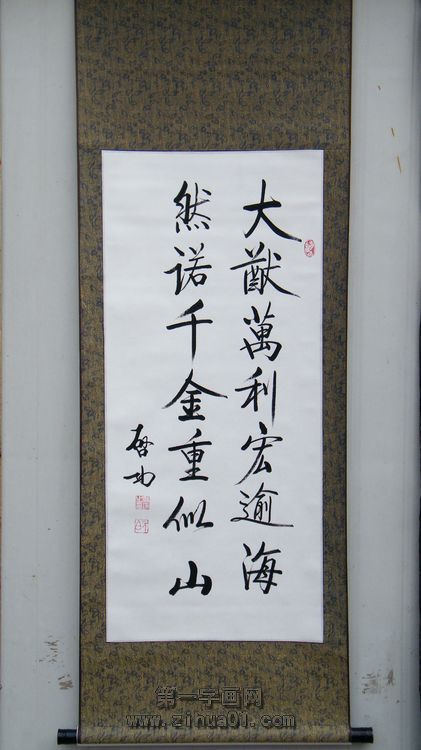 大猷萬利宏逾海
然诺千金重似山
啓功
第一字画网
www.zihua01.com